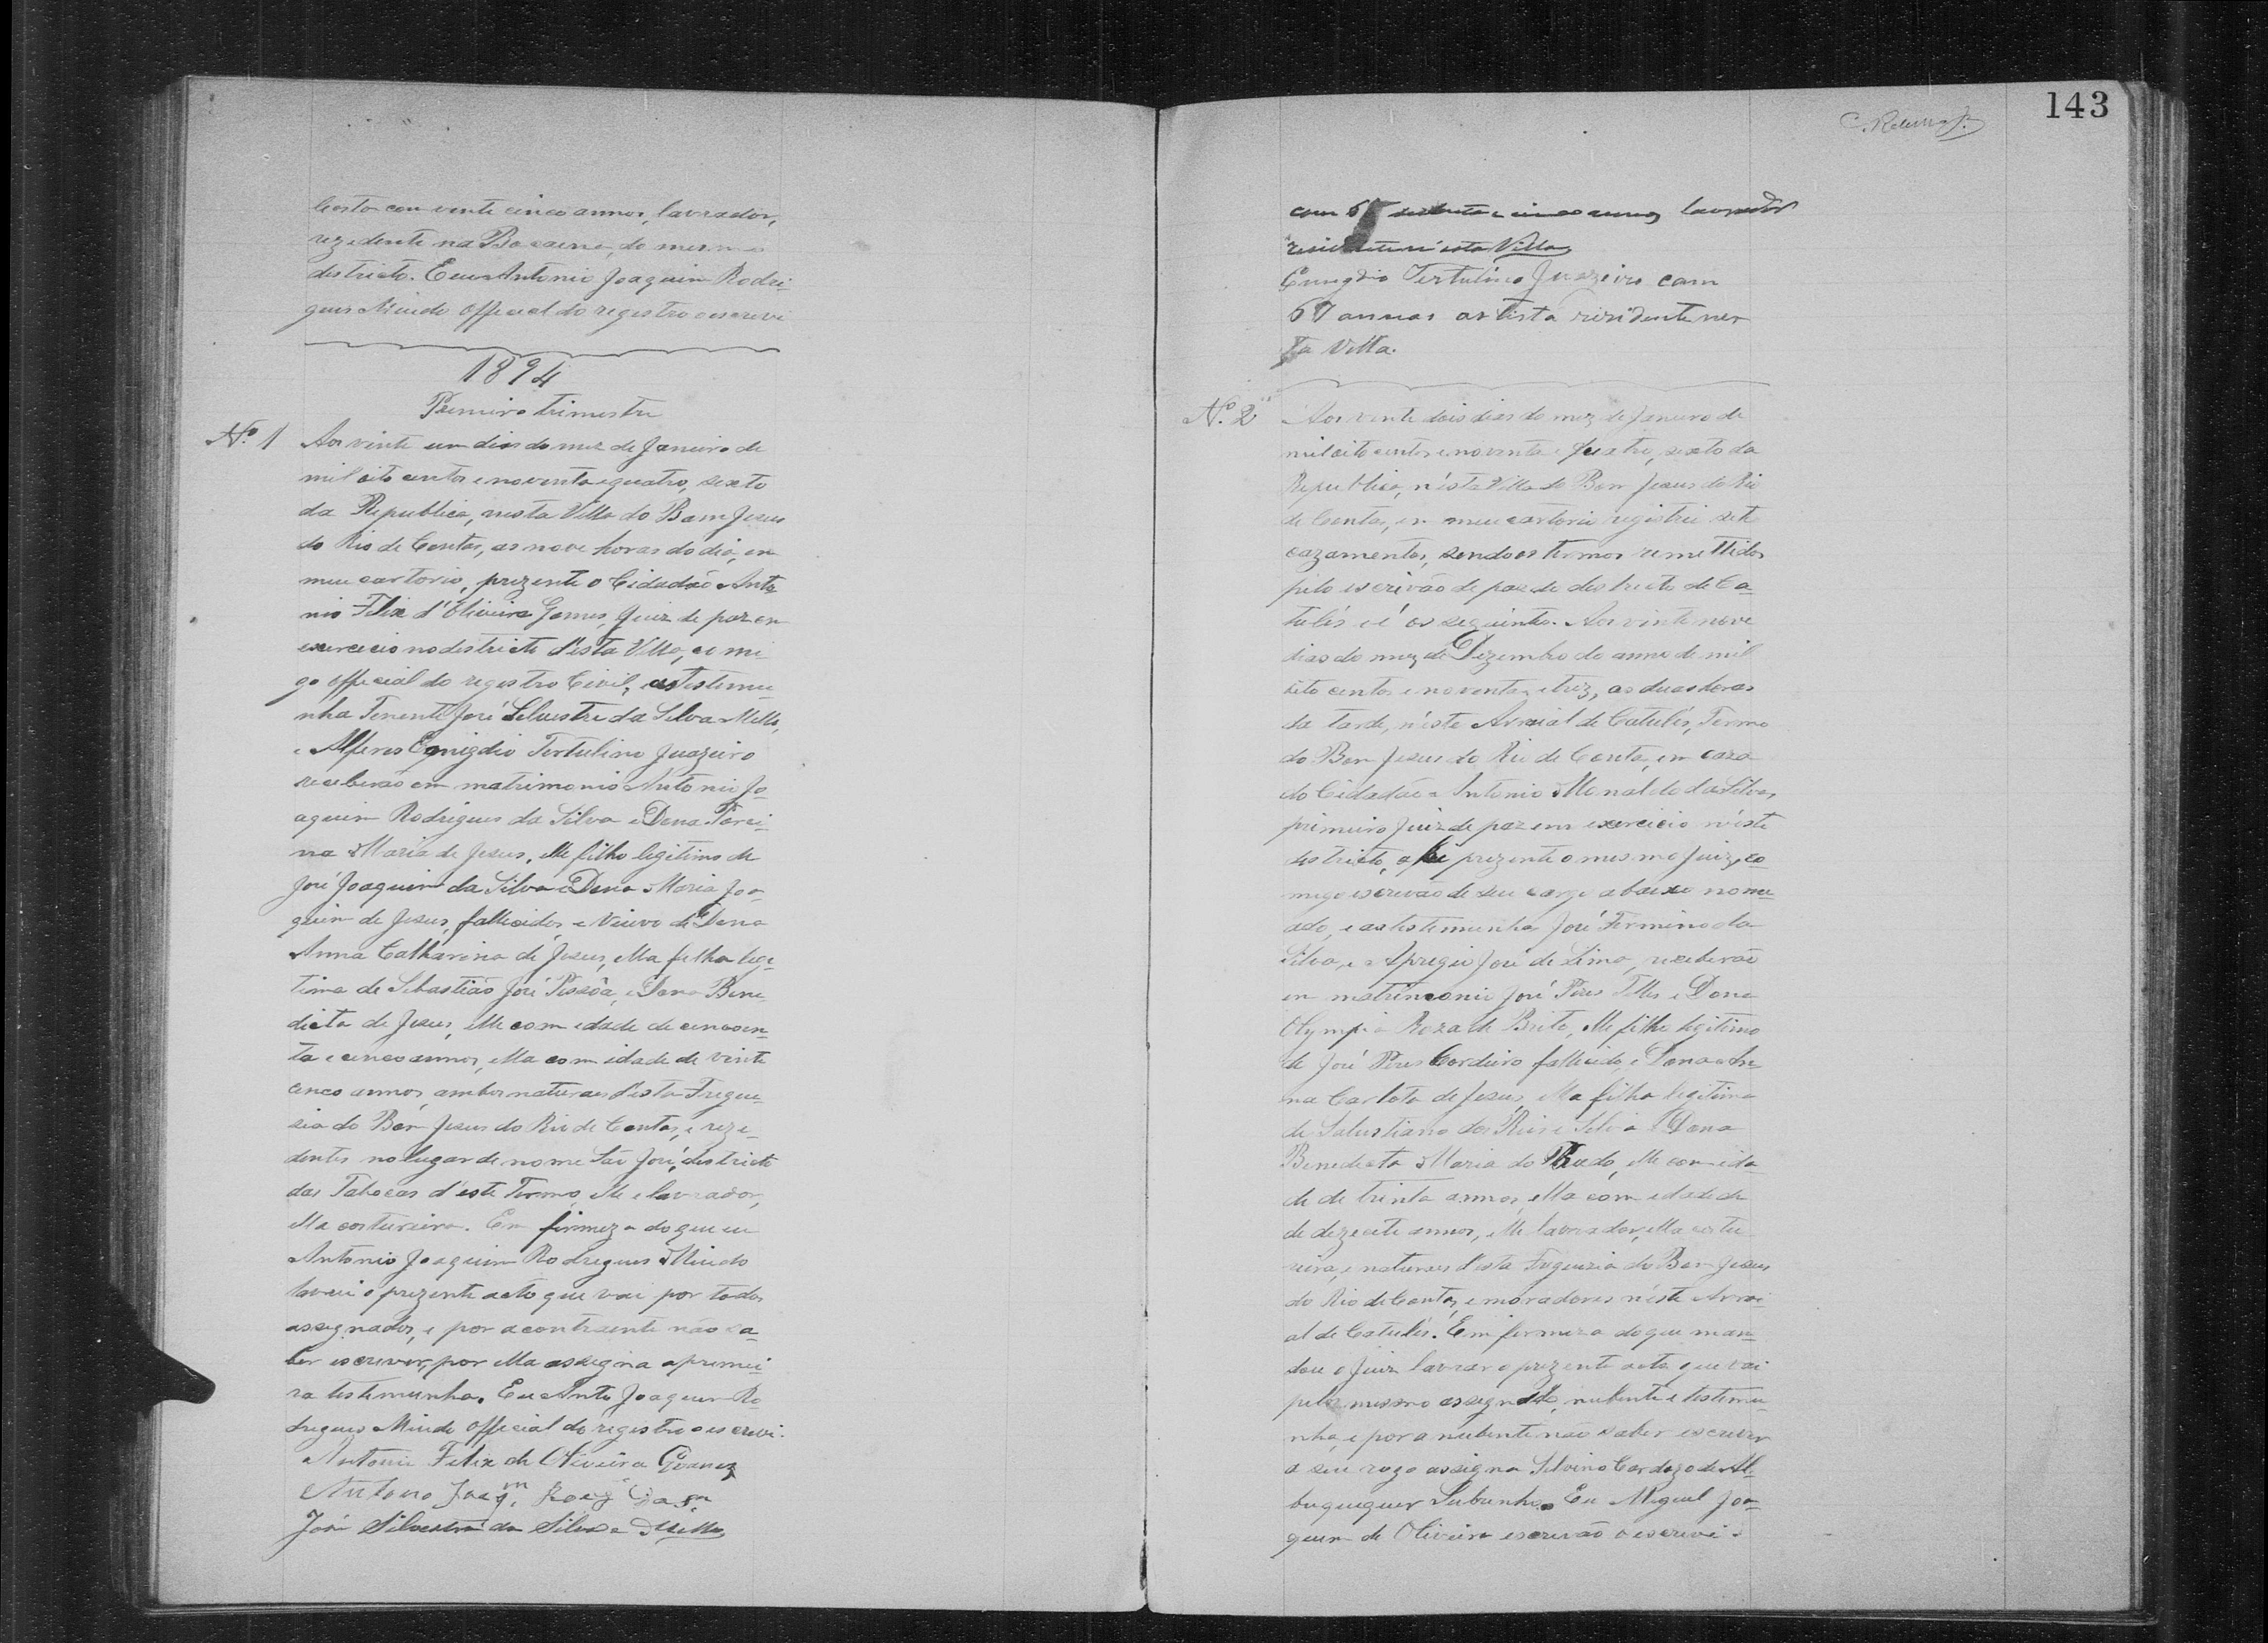 Costa com vente cinco annos, lavrador,
rezedente na Bocaena, do mesmo
destricto. Eeu Antonio Joaquim Rodri-
gues Miudo Official do registro o escrevi
1894
Premeiro trimestre
Nº. 1 Aos vinte um dias do mez de Janeiro de
mil oito centos e noventa e quatro, sexto
da Republica, nesta Villa do Bom Jesus
do Rio de Contas, as nove horas do dia, em
meu cartorio, prezente o Cidadão Anto
nio Felix d'Oliveira Gomes, Juiz de paz em
exercecio no destricto d'esta Villa, co mi
go official do registro Civil, e as testemu-
nha Tenente José Selvestre da Selva Mello,
e Alferes Emigdio Tertulino Juazeiro
receberão em matrimonio Antonio Jo-
aquim Rodrigues da Silva e Dona
na Maria de Jesus, elle filho legitimo de
José Joaquim da Silva e Dona Maria Joa-
quim de Jesus, fallecidos e Veuvo de Dona
Anna Catharina de Jesus, ella filha lege
tima de Sebastião José Pessôa, e Dona Bene
dicta de Jesus, elle com edade de cencoen-
ta e cenco annos, ella com idade de vinte
cenco annos, ambos naturaes d'esta Fregue-
sia do Bom Jesus do Rio de Contas, e reze-
dentes no lugar de nome São José, destricto
das Tabocas d'este Termo, elle e lavrador,
ella costureira. Em firmeza do que eu
Antonio Joaquim Rodregues Miudo
lavrei o prezente acto que vai por todos
assegnados, e por a contraente não sa-
ber escrever, por ella assegna a premei-
ra testemunha. Eu Antº Joaquim Ro-
dregues Miudo Official do registro o escrevi.
Antonio Felix de Oliveira Gomes
Antono Joaqm. Roiz da Sª
José Silvestre da Silva e Mello
143
com 65 secenta e cinco annos lavrador
residente n'esta Villa
Emigdio Tertulino Juazeiro com
67 annos artista risidente nes
ta Villa.
Nº. 2 Aos vente dois dias do mez de Janeiro de
mil oito centos e noventa e quatro, sexto da
Republica, n'esta Villa do Bom Jesus do Rio
de Contas, em meu cartorio registrei sete
cazamentos, sendo os termos remettidos
pelo escrivão de paz do destricto de Ca-
tulés e é os seguintes. Aos vinte nove
dias do mez de Dezembro do anno de mil
oito centos e noventa e trez, as duas horas
da tarde, n'este Arraial de Catulés, Termo
do Bom Jesus do Rio de Contas, em caza
do Cidadão Antonio Monaldo da Silva,
primeiro Juiz de paz em exercicio n'este
destricto, ahi prezente o mesmo Juiz, co
migo escrevão de seu cargo abaixo nome-
ado, e as testemunhas José Fermino da
Silva, e Apregio José de Lima, receberão
em matrimonio José Pires Telles e Dona
Olympia Roza de Brito, elle filho legitimo
de José Pires Cordeiro fallecido, e Dona An
na Carlota de Jesus, ella filha legitima
de Salustiano dos Reis e Silva e Dona
Benedicta Maria do Prado, elle com eda
de de trinta annos, ella com edade de
de dezecete annos, elle lavrador, ella costu
reira, e naturaes d'esta Freguezia do Bom Jesus
do Rio de Contas, e moradores n'este Arrai-
al de Catulés. E em fermeza do que man-
dou o Juiz lavrar o prezente acto que vai
pelo mesmo assegnado, nubente e testemu-
nha, e por a nubente não saber escrever
a seu rogo assigna Silvino Cardozo de Al-
buquequer Eu Miguel Joa-
quim de Oliveira escrevão o escrevi.